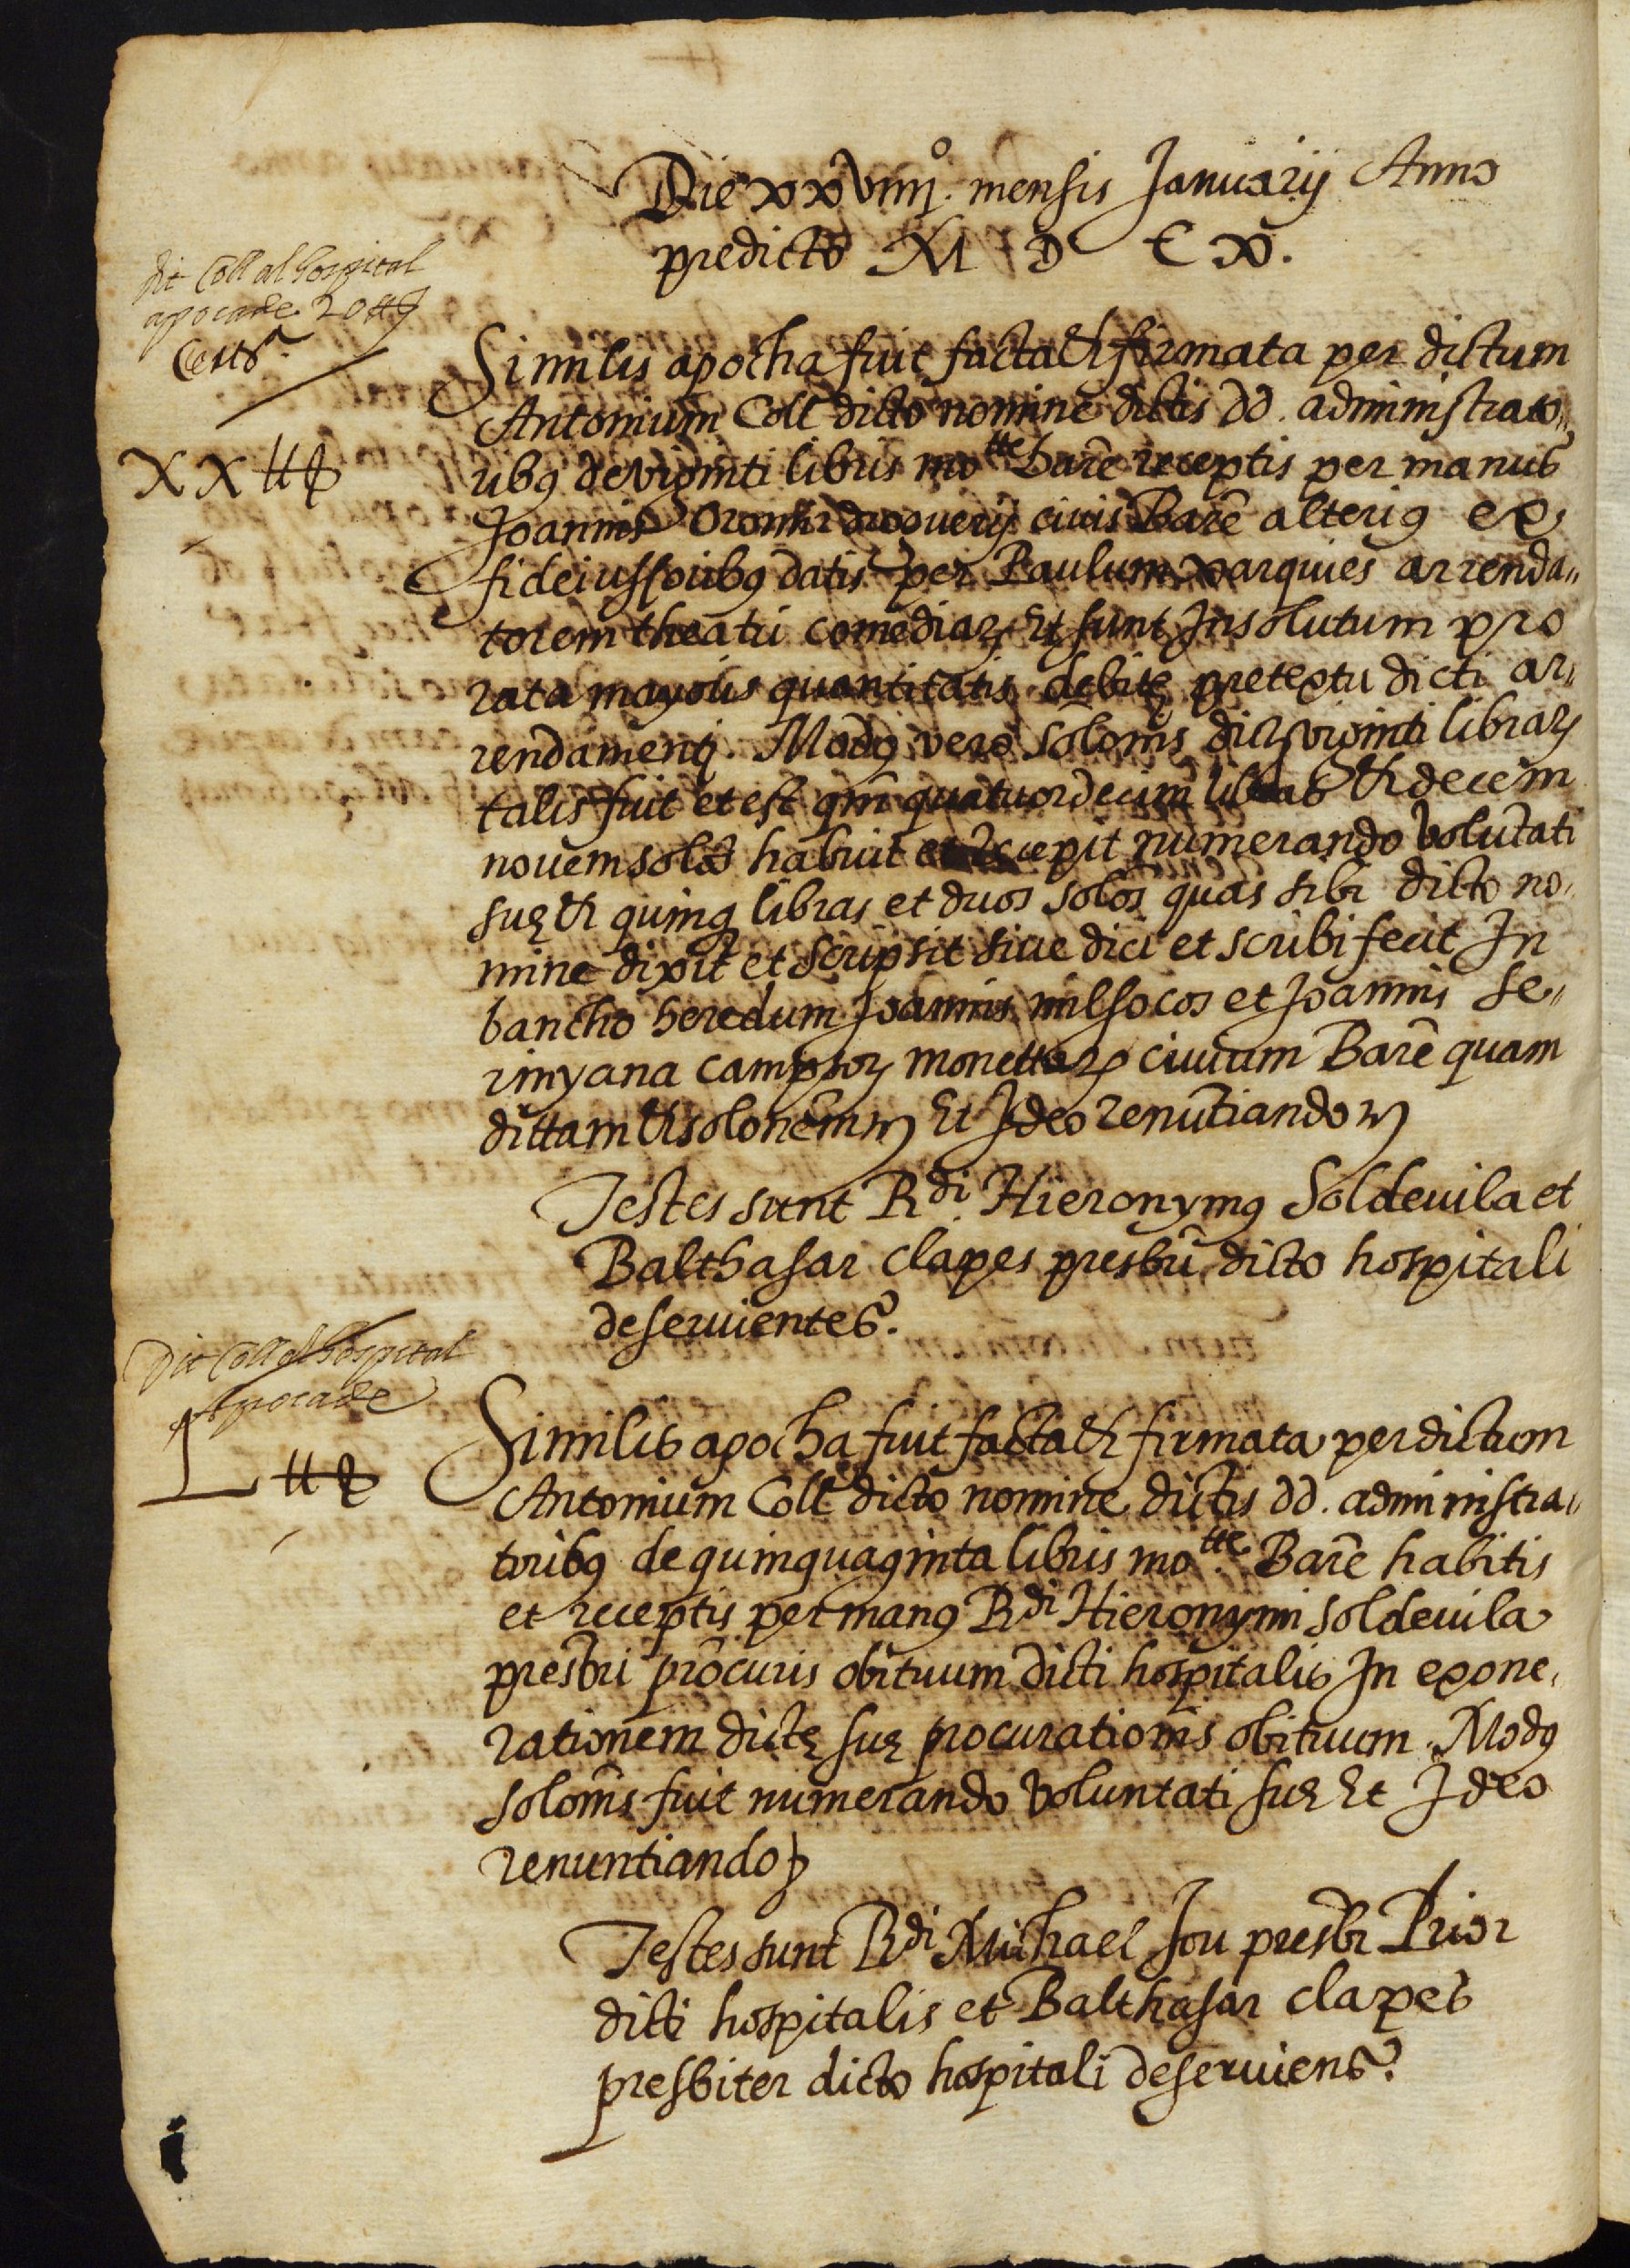 Die xxviiij.º mensis Januarij Anno
predicto M D C X.
dit Coll al hospital
apoca de 20 ℔
Certª
Similis apocha fuit facta et firmata per dictum
Antonium Coll dicto nomine dictis dd. administrato„
XX ℔
ribꝯ de viginti libris moᵗᵗᵉ Barẽ receptis per manus
Joannis droguerij civis Barẽ alteriꝯ ex
fideiussoribꝯ datis per Paulum xarquies arrenda„
torem theatri comediaꝝ Et sunt Insolutum pro
rata mayoris quantitatis debitę pretextu dicti ar„
rendamenti. Modꝯ vero solonis dictaꝝ viginti libraꝝ
talis fuit et est qm̃ quatuordecim libras et decem
novem solos habuit et recepit numerando volutati
suę et quinqꝫ libras et duos solos quas sibi dicto no„
mine dixit et scripsit sive dici et scribi fecit In
bancho heredum Joannis milsocos et Joannis Se„
rinyana campsoꝝ monettaꝝ civium Barẽ quam
dittam et solonem Et Ideo renuntiando
Testes sunt Rᵈⁱ Hieronymꝯ Soldevila et
Balthasar clapes presbri dicto hospitali
deservientes.
Dit Coll al hospital
Apoca de
L ℔
Similis apocha fuit facta et firmata per dictum
Antonium Coll dicto nomine dictis dd. administra„
toribꝯ de quinquaginta libris moᵗᵗᵉ Barẽ habitis
et receptis per manꝯ Rᵈⁱ Hieronymi soldevila
presbri procuris obituum dicti hospitalis In exone„
rationem dictę suę procurationis obituum. Modꝯ
solonis fuit numerando voluntati suę Et Ideo
renuntiando
Testes sunt Rᵈⁱ Michael Jou presbr Prior
dicti hospitalis et Balthasar clapes
presbiter dicto hospitali deserviens.